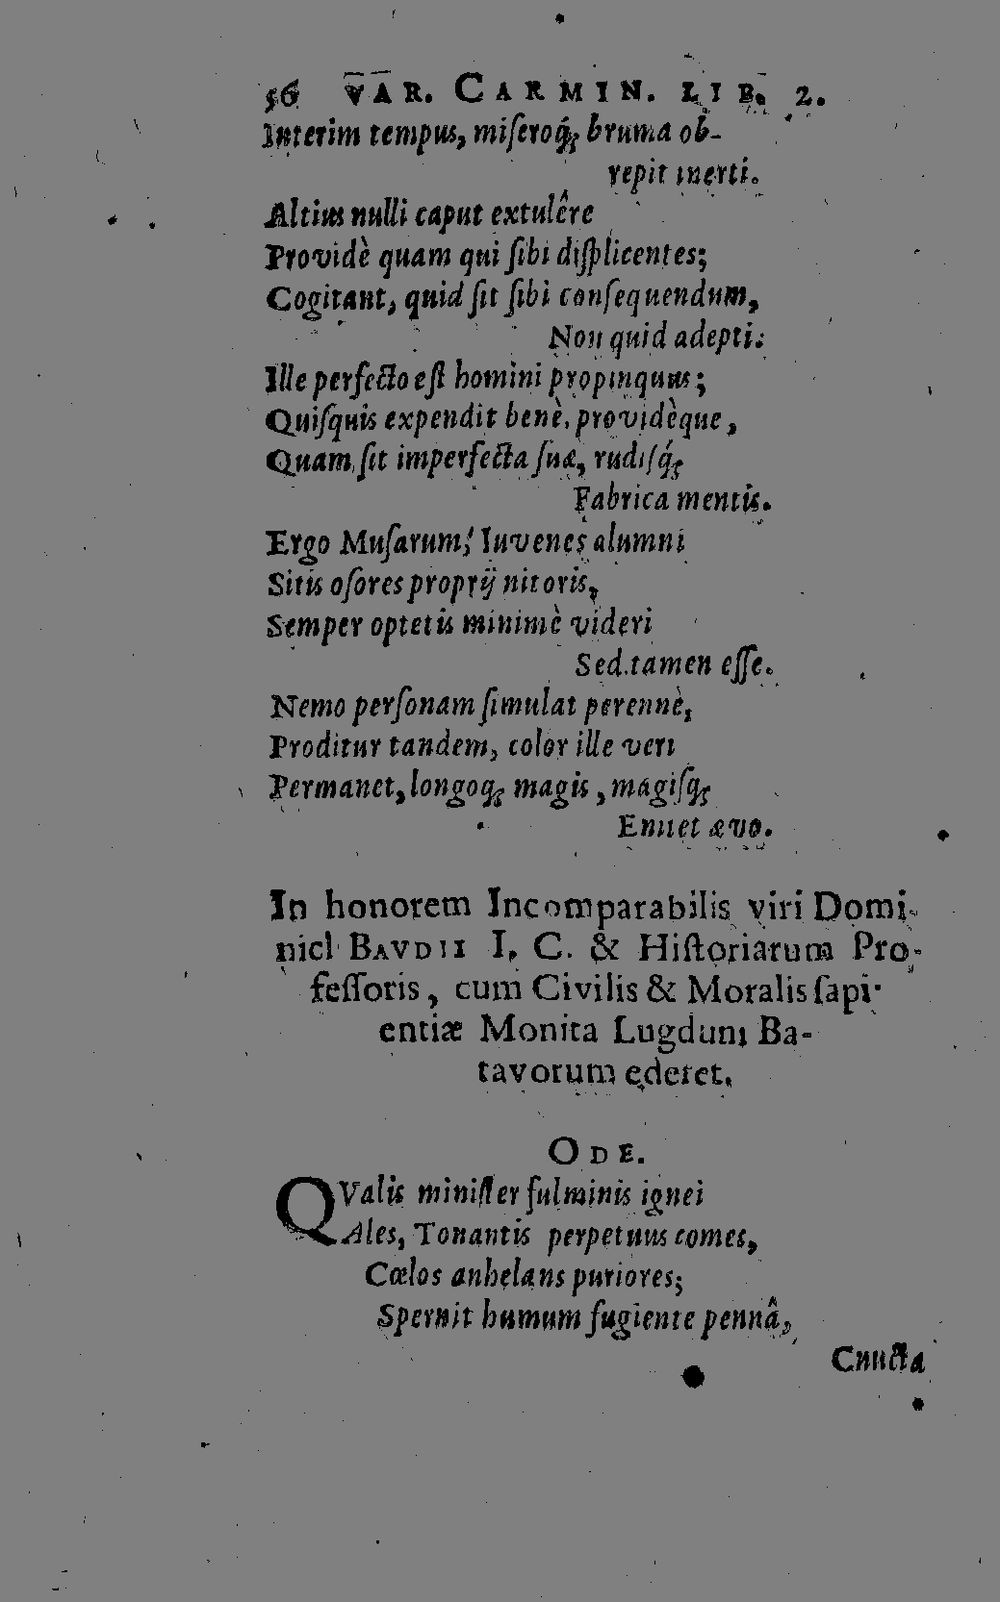 56 VAR. CARMIN. LIB. 2.
Interim tempus, miſeroq́; bruma ob-
repit inerti.
Altius nulli caput extulêre
Providè quam qui ſibi diſplicentes;
Cogitant, quid ſit ſibi conſequendum,
Non quid adepti.
Ille perfecto eſt homini propinquus;
Quiſquis expendit benè, providèque,
Quam ſit imperfecta ſuæ, rudiſq́;
Fabrica mentis.
Ergo Muſarum, Iuvenes alumni
Sitis oſores proprij nitoris,
Semper optetis minimè videri
Sed tamen eſſe.
Nemo perſonam ſimulat perennè,
Proditur tandem, color ille veri
Permanet, longoq; magis, magiſq;
Enitet ævo.
In honorem Incomparabilis viri Domi-
nici BAVDII I. C. & Hiſtoriarum Pro-
feſſoris, cum Civilis & Moralis ſapi-
entiæ Monita Lugduni Ba-
tavorum ederet.
ODE.
QValis miniſter fulminis ignei
Ales, Tonantis perpetuus comes,
Cœlos anhelans puriores;
Spernit humum fugiente pennâ,
Cuncta